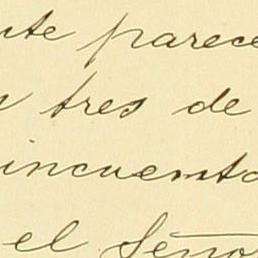 nte parece
n tres de
incuenta
el Seño